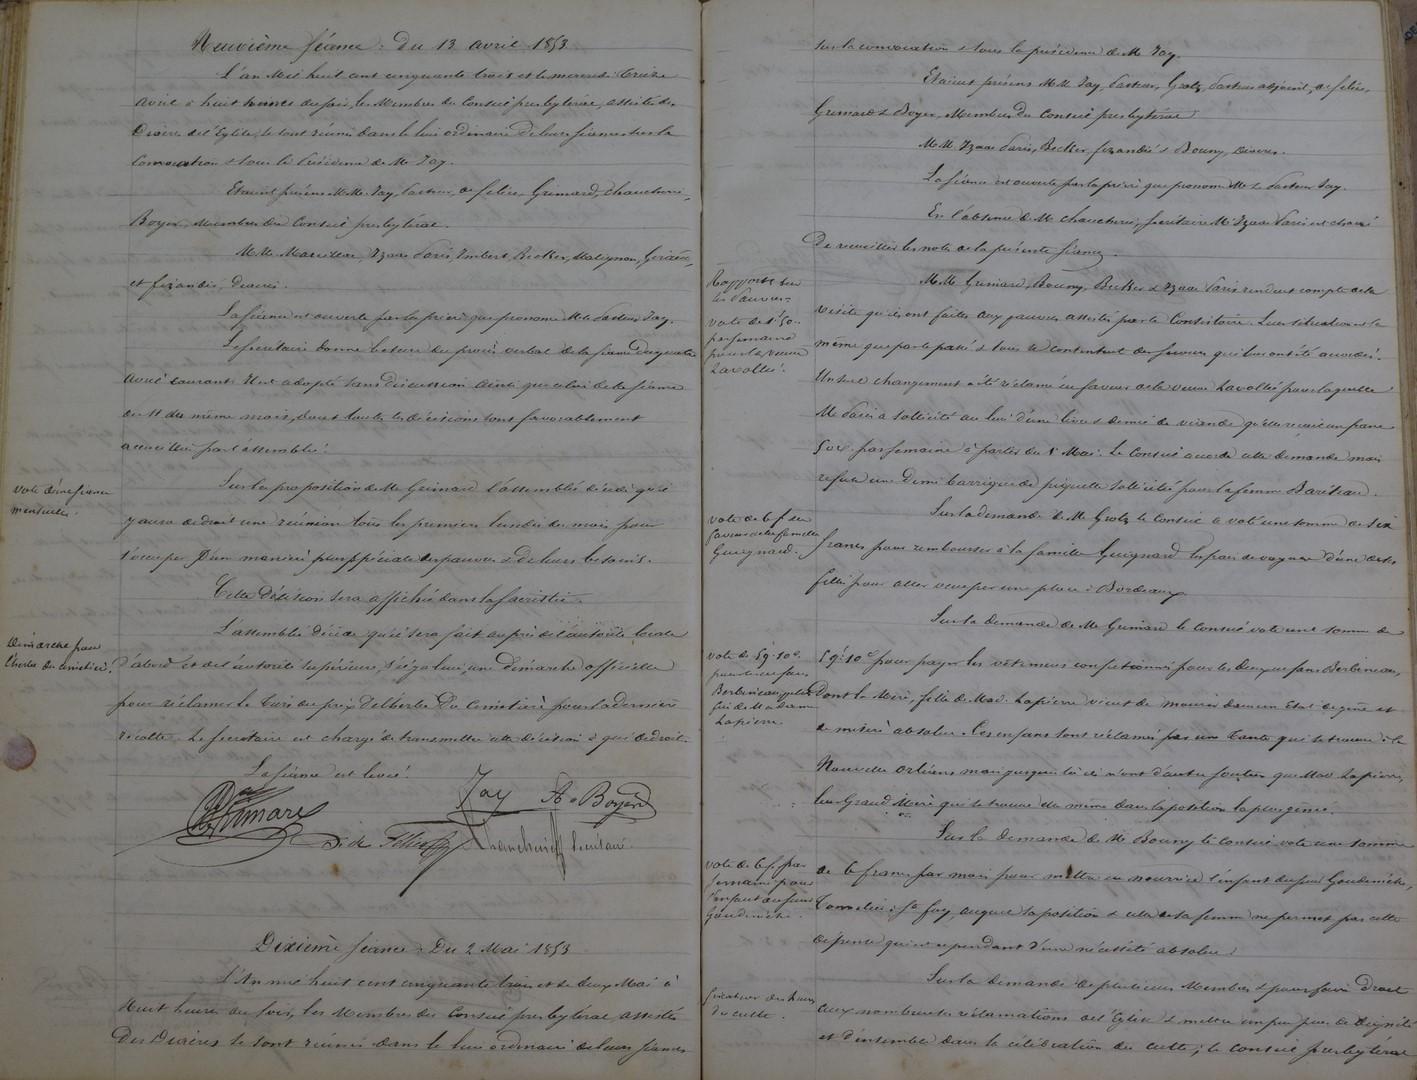 Neuvième séance. Du 13 avril 1853
L'an Mil huit cent cinquante trois et le mercredi treize
avril à huit heures du soir, les Membres du Conseil presbytéral, assistés des
Diacres de l'Eglise, se sont réunis dans le lieu ordinaire de leurs séances sur la
Convocation & sous la Présidence de Mr Jay.
Etaient présens MM. Jay, Pasteur, de félice, Grimard, Chaucherie,
Boyer, Membres du Conseil presbytéral.
MM. Izaac Paris, Imbert, Becker, Malignon,
et fizandié, Diacres.
La séance est ouverte par la prière que prononce Mr le Pasteur Jay.
Le Secrétaire donne lecture du procès verbal de la séance du quatre
avril courant. Il est adopté sans discussion ainsi que celui de la séance
du 11 du même mois, dont toutes les décisions sont favorablement
accueillies par l'assemblée.
Vote d'une séance
mensuelle.
Sur la proposition de Mr Grimard l'assemblée décide qu'il
y aura de droit une réunion tous les premiers lundis du mois pour
s'occuper d'une manière plus spéciale des pauvres & de leurs besoins.
Cette décision sera affichée dans la sacristie.
Démarche pour
l'herbe du cimetière.
L'assemblée décide qu'il sera fait auprès de l'autorité locale
d'abord et de l'autorité supérieure, s'il y a lieu, une démarche officielle
pour réclamer le tiers du prix de l'herbe du Cimetière pour la dernière
récolte. Le Secrétaire est chargé de transmettre cette décision à qui de droit.
La séance est levée.
Grimard
Jay
A. Boyer
de Félice
Chaucherie Secrétaire
Dixième séance. Du 2 Mai 1853
L'An mil huit cent cinquante trois et le deux Mai à
Huit heures du soir, les Membres du Conseil presbytéral assistés
Des Diacres se sont réunis dans le lieu ordinaire de leurs séances
sur la convocation & sous la présidence de Mr Jay.
Etaient présens MM. Jay, Pasteur, Grotz, Pasteur adjoint, de félice,
Grimard & Boyer, Membres du Conseil presbytéral
MM. Izaac Paris, Becker, fizandié & Bouny, Diacres.
La séance est ouverte par la prière que prononce Mr le Pasteur Jay.
En l'absence de Mr Chaucherie, Secrétaire Mr Izaac Paris est chargé
De recueillir les notes de la présente séance.
Rapports sur
les Pauvres
vote de 1f 50c
par semaine
pour la veuve
Lavollée.
MM. Grimard, Bouny, Becker & Izaac Paris rendent compte de la
visite qu'ils ont faite aux pauvres assistés par le Consistoire. Leur situation est la
même que par le passé & tous se contentent des secours qui leur ont été accordés.
Un seul changement a été réclamé en faveur de la veuve Lavollée pour laquelle
Mr Paris a sollicité au lieu d'une livre & demie de viande qu'elle reçoive un franc
50c par semaine à partir du 1er Mai. Le Conseil accorde cette demande mais
refuse une demi barrique de piquette sollicitée pour la femme Bariteau.
vote de 6 f en
faveur de la famille
Guignard.
Sur la demande de Mr Grotz le Conseil a voté une somme de six
francs pour rembourser à la famille Guignard les frais de voyage d'une de ses
filles pour aller occuper une place à Bordeaux
vote de 59f 10c
pour les enfans
Berbineau, petits
fils de Madame
Lapierre.
Sur la demande de Mr Grimard le Conseil vote une somme de
59f 10c pour payer les vêtemens confectionnés pour les deux enfans Berbineau,
Dont la Mère, fille de Mad. Lapierre vient de mourir dans un Etat de gêne et
de misère absolue. Ces enfans sont réclamés par une tante qui se trouve à la
Nouvelle Orléans mais jusque là ils n'ont d'autre soutien que Mad. Lapierre,
leur Grand Mère qui se trouve elle même dans la position la plus gênée.
vote de 6 f. par
semaine pour
l'enfant du sieur
Goudenèche.
Sur la demande de Mr Bouny le Conseil vote une somme
de 6 francs par mois pour mettre en nourrice l'enfant du sieur Goudenèche,
Tonnelier à Ste foy, auquel sa position & celle de sa femme ne permet pas cette
dépense qui est cependant d'une nécessité absolue.
fixation des heures
du culte.
Sur la demande de plusieurs Membres & pour faire droit
aux nombreuses réclamations de l'Eglise & mettre un peu plus de dignité
et d'ensemble dans la célébration du culte ; le Conseil presbytéral